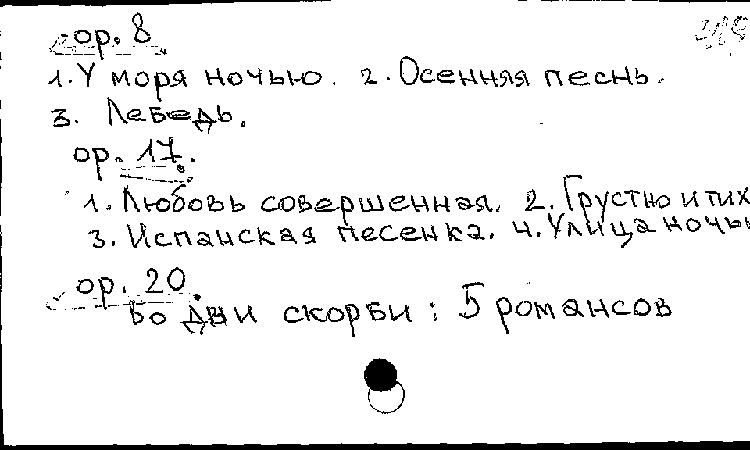 ор. 8
1. У моря ночью. 2. Осенняя песнь.
3. Лебедь.
ор. 17.
1. Любовь совершенная. 2. Грустно и тих
3. Испанская песенка. 4. Улица ночью
ор. 20.
Во дни скорби: 5 романсов